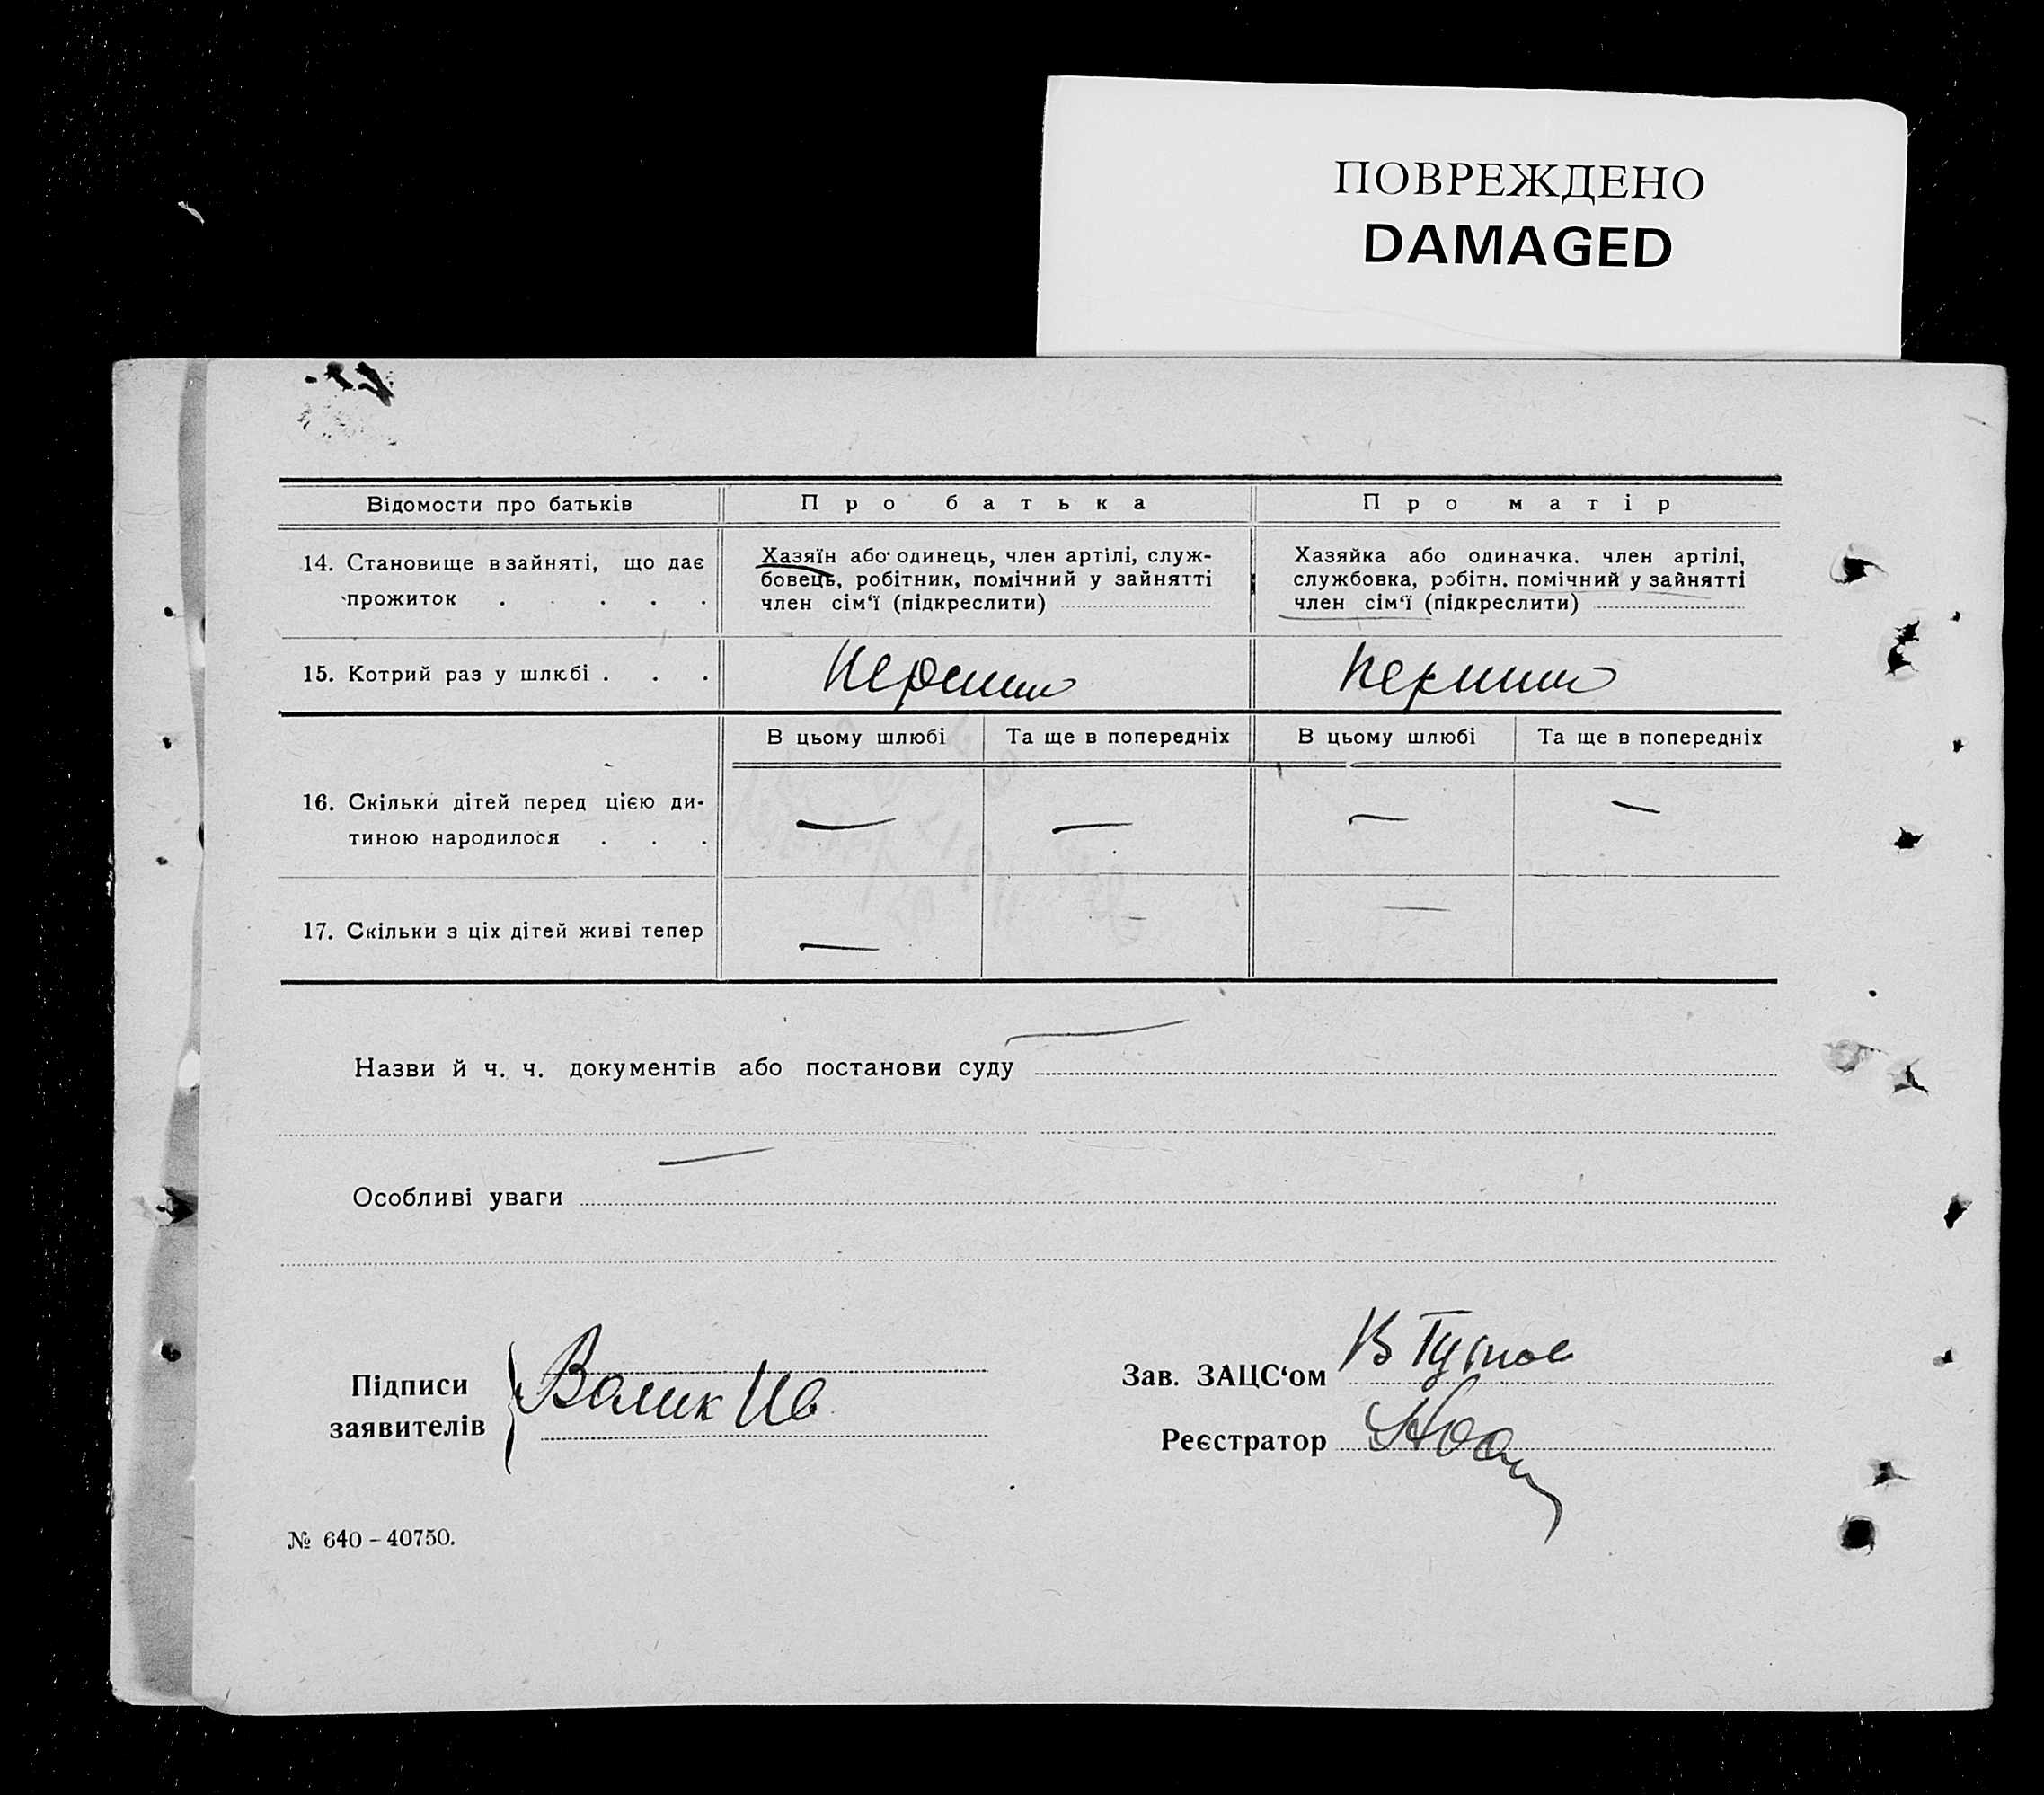 ПОВРЕЖДЕНО
DAMAGED
Відомости про батьків
Про батька
Про матір
14. Становище в зайняті, що дає
прожиток . . . . .
Хазяїн або одинець, член артілі, служ-
бовець, робітник, помічний у зайнятті
член сім‘ї (підкреслити)
Хазяйка або одиначка. член артілі,
службовка, робітн. помічний у зайнятті
член сім‘ї (підкреслити)
15. Котрий раз у шлюбі . . .
Перший
Перший
В цьому шлюбі
Та ще в попередніх
В цьому шлюбі
Та ще в попередніх
16. Скільки дітей перед цією ди-
тиною народилося . . .
— — — —
17. Скільки з ціх дітей живі тепер
— – —
Назви й ч. ч. документів або постанови суду —
Особливі уваги —
Підписи
заявителів
Валик Ив
Зав. ЗАЦС‘ом
Реєстратор
№ 640 – 40750.